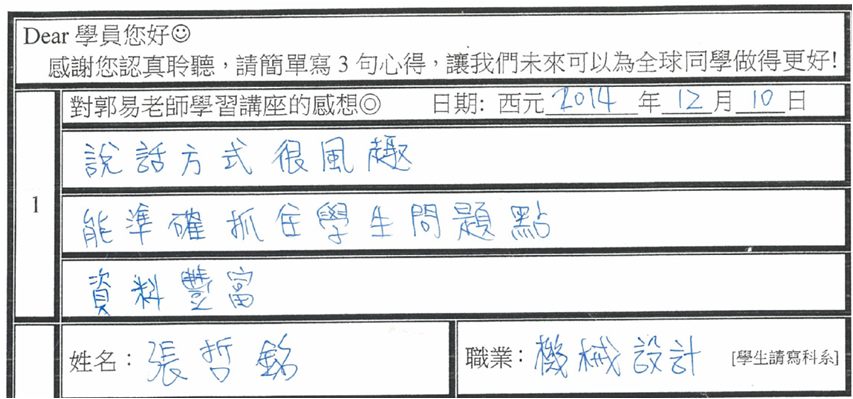 Dear 學員您好☺
感謝您認真聆聽，請簡單寫 3 句心得，讓我們未來可以為全球同學做得更好!
對郭易老師學習講座的感想◎ 日期: 西元 2014 年 12 月 10 日
說話方式很風趣
1
能準確抓住學生問題點
資料豐富
姓名：張哲銘 職業：機械設計 [學生請寫科系]